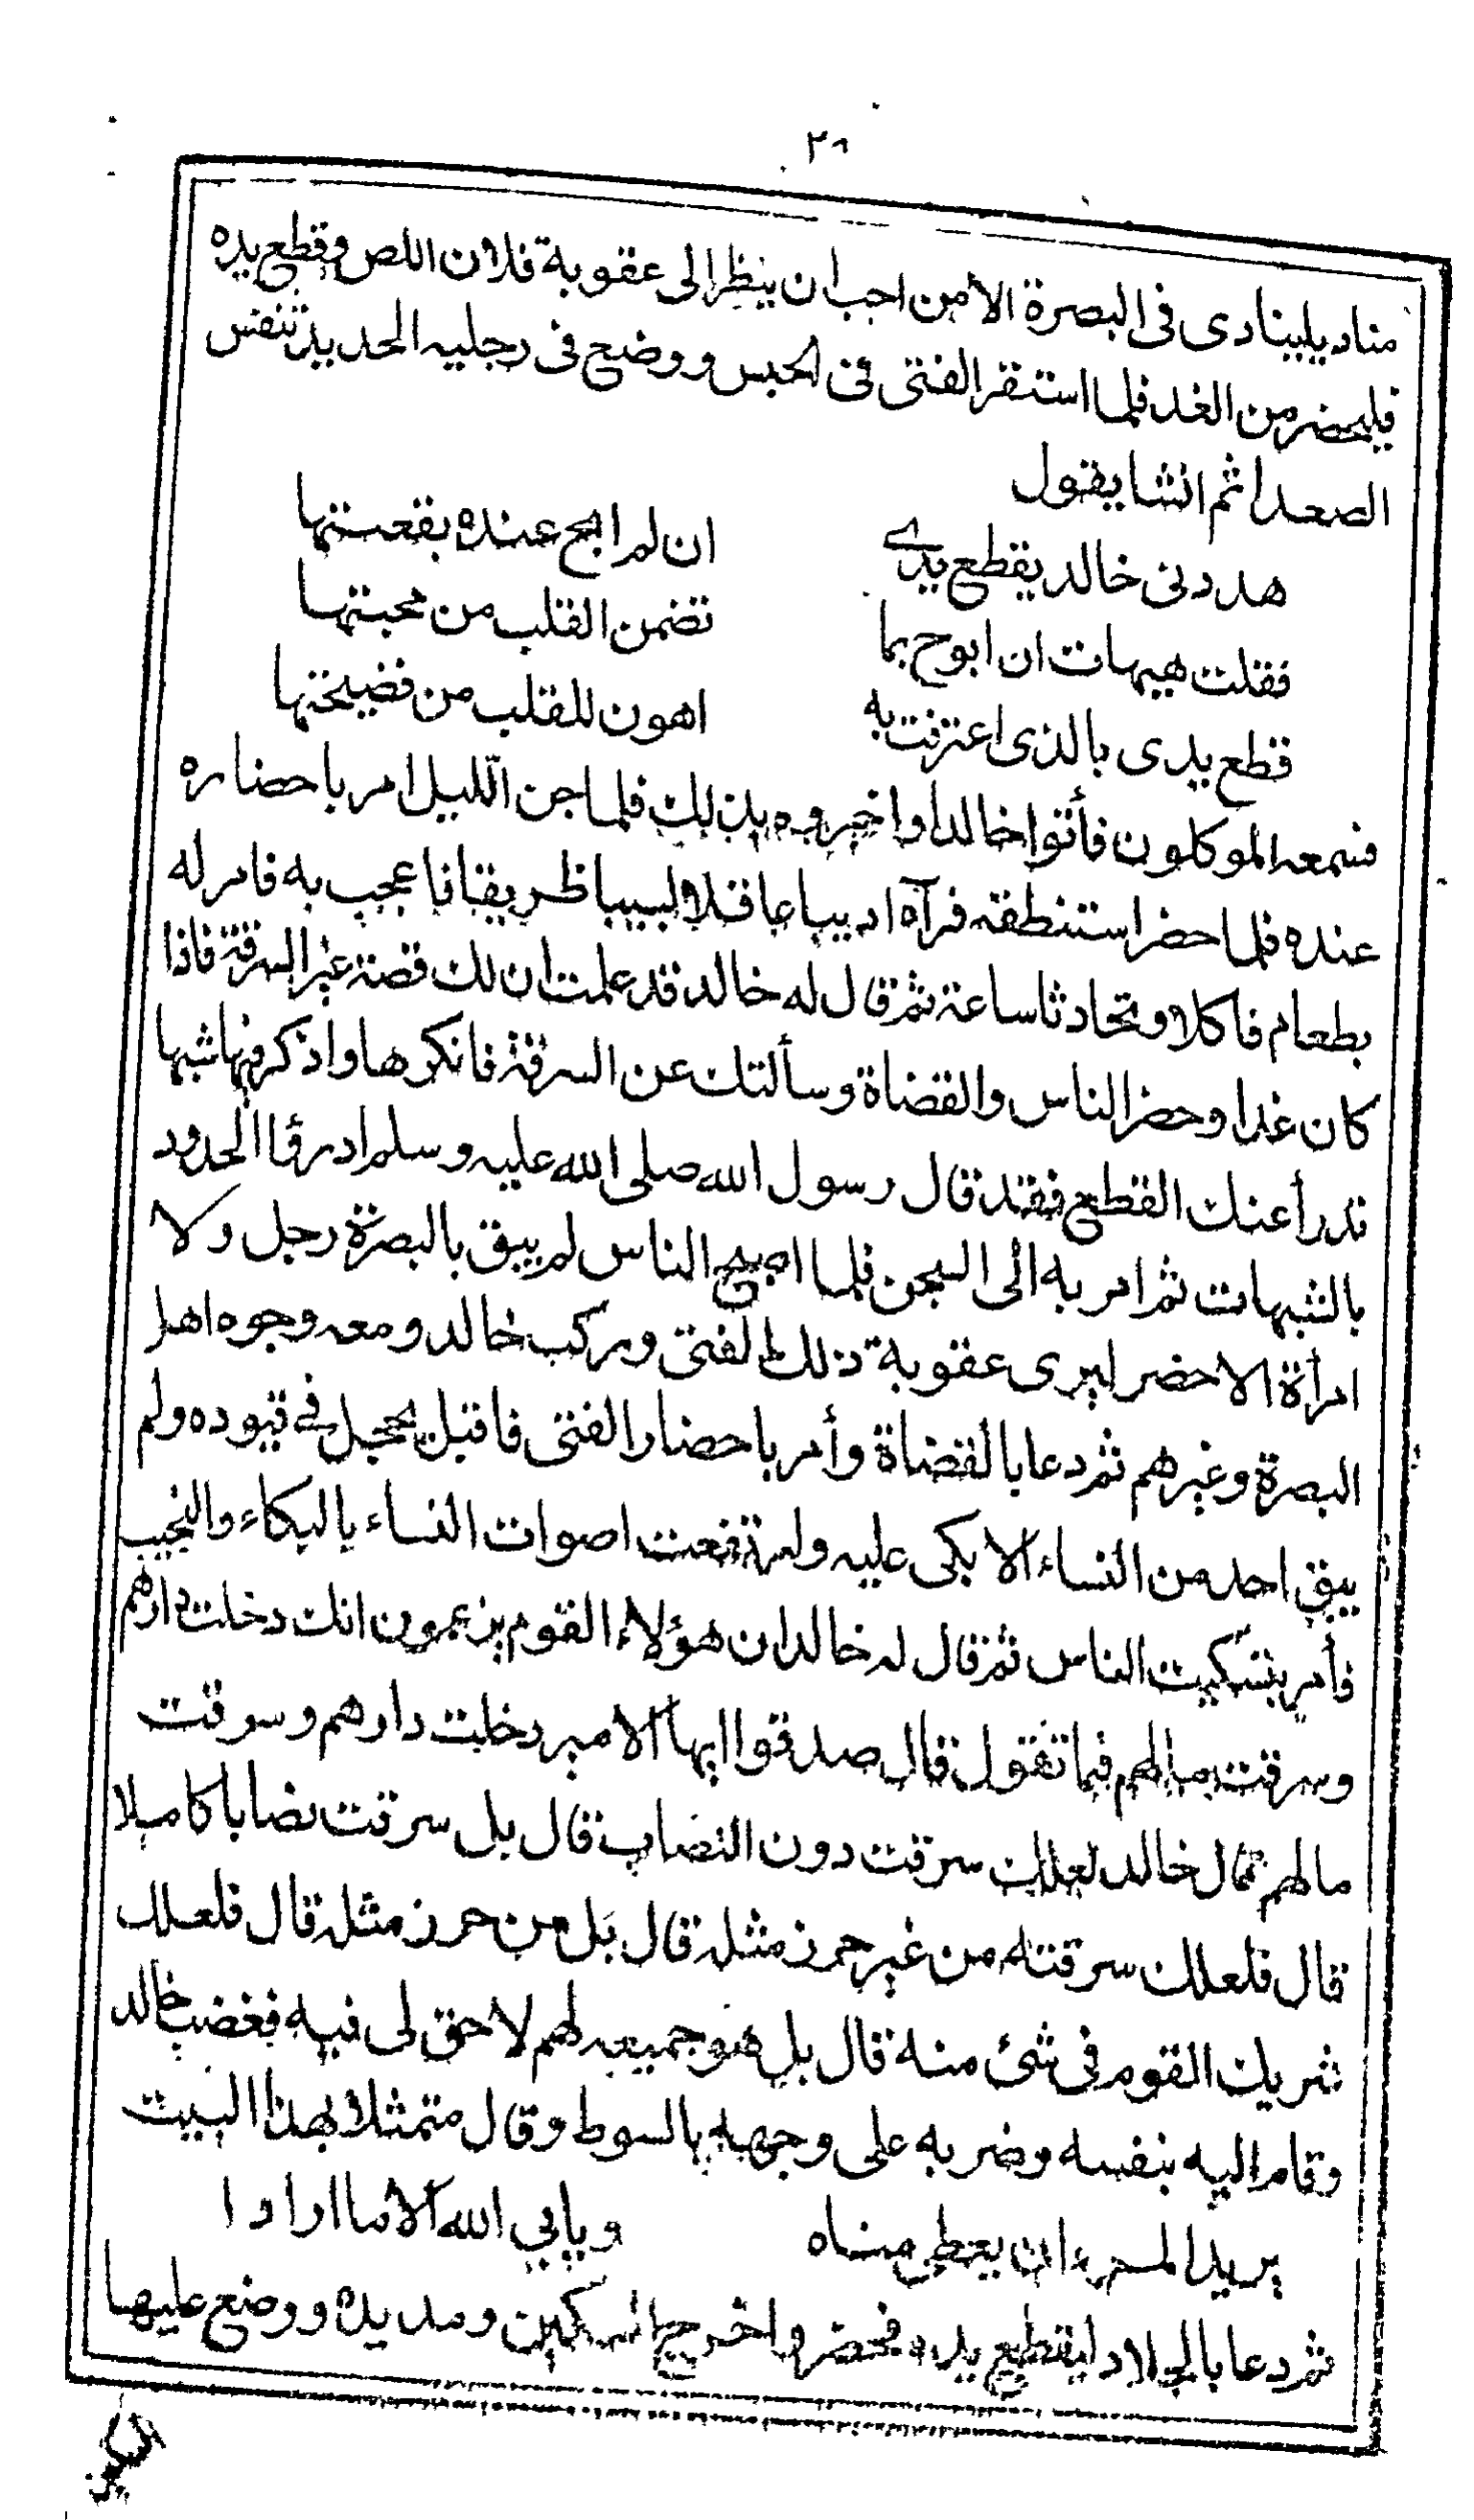 ٢٦
مناد يا ينادى فى البصرة الا من احب ان ينظر الى عقوبة فلان اللص وقطع يده
فليحضر من الغد فلما استقر الفتى فى الحبس ووضع فى رجليه الحديد تنفس
الصعدا ثم انشا يقول
هددنى خالد يقطع يدى ان لم ابح عنده بقصتها
فقلت هيهات ان ابوح بما تضمن القلب من محبتها
قطع يدى بالذى اعترفت به اهون للقلب من فضيحتها
فسمعه الموكلون فأتوا خالدا واخبروه بذلك فلما جن الليل امر باحضاره
عنده فلما حضر استنطقه فرآه اديبا عاقلا لبيبا ظريفا فاعجب به فامر له
بطعام فاكلا وتحادثا ساعة ثم قال له خالد قد علمت ان لك قصة غير السرقة فاذا
كان غدا وحضر الناس والقضاة وسألتك عن السرقة فانكرها واذكر فيها شبها
تدرأ عنك القطع فقد قال رسول الله صلى الله عليه وسلم ادرؤا الحدود
بالشبهات ثم امر به الى السجن فلما اصبح الناس لم يبق بالبصرة رجل ولا
امرأة الا حضر ليرى عقوبة ذلك الفتى وركب خالد ومعه وجوه اهل
البصرة وغيرهم ثم دعا بالقضاة وأمر باحضار الفتى فاقبل يحجل فى قيوده ولم
يبق احد من النساء الا بكى عليه وارتفعت اصوات النساء بالبكاء والنحيب
فأمر بتسكيت الناس ثم قال له خالد ان هؤلاء القوم يزعمون انك دخلت دارهم
وسرقت مالهم فما تقول قال صدقوا ايها الامير دخلت دارهم وسرقت
مالهم قال خالد لعلك سرقت دون النصاب قال بل سرقت نصابا كاملا
قال فلعلك سرقته من غير حرز مثله قال بل من حرز مثله قال فلعلك
شريك القوم فى شئ منه قال بل هو جميعه لهم لا حق لى فيه فغضب خالد
وقام اليه بنفسه وضربه على وجهه بالسوط وقال متمثلا بهذا البيت
يريد المرء ان يعطى مناه ويابي الله الا ما ارادا
ثم دعا بالجلاد ليقطع يده فحضر واخرج السكين ومد يده ووضع عليها